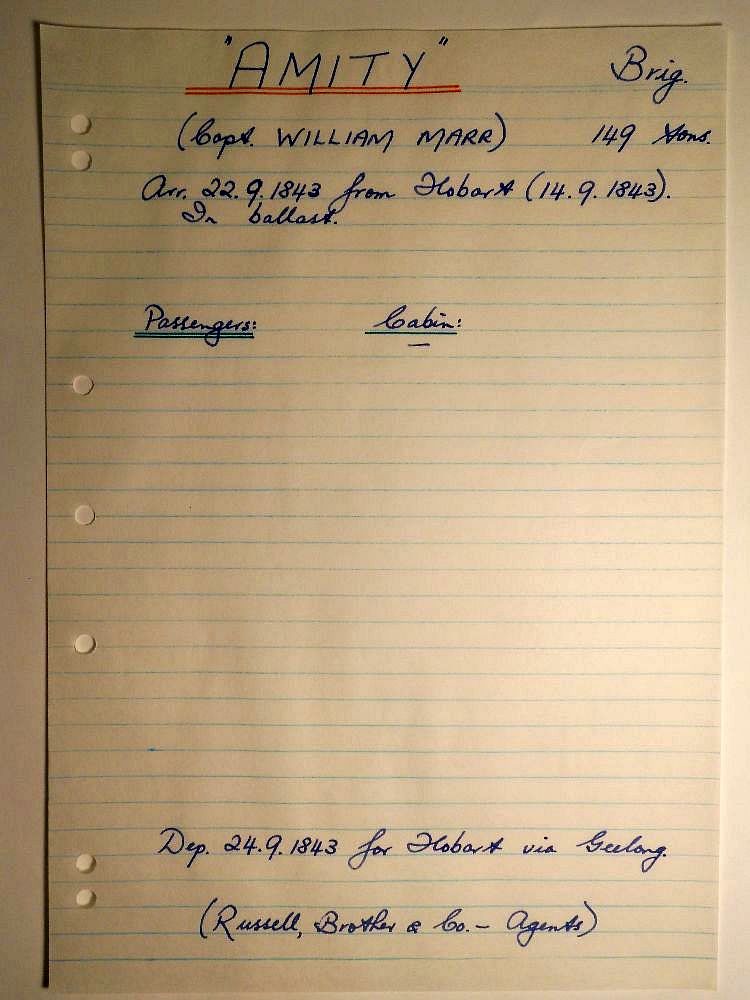 "AMITY" Brig.
(Capt. WILLIAM MARR) 149 tons.
Arr. 22.9.1843 from Hobart (14.9.1843).
In ballast.
Passengers: Cabin:
—
Dep. 24.9.1843 for Hobart via Geelong.
(Russell, Brother & Co. – Agents)